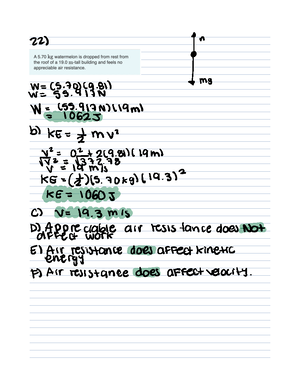 22)
n
A 5.70 kg watermelon is dropped from rest from
the roof of a 19.0 m-tall building and feels no
appreciable air resistance.
mg
W = (5.70)(9.81)
W = 55.917 N
W = (55.917N)(19m)
= 1062J
b) KE = 1/2 m v²
v² = 0² + 2(9.81)(19m)
√v² = √372.78
v = 19 m/s
KE = (1/2)(5.70kg)(19.3)²
KE = 1060 J
C) V = 19.3 m/s
D) Appreciable air resistance does Not
affect work
E) Air resistance does affect kinetic
energy
F) Air resistance does affect velocity.